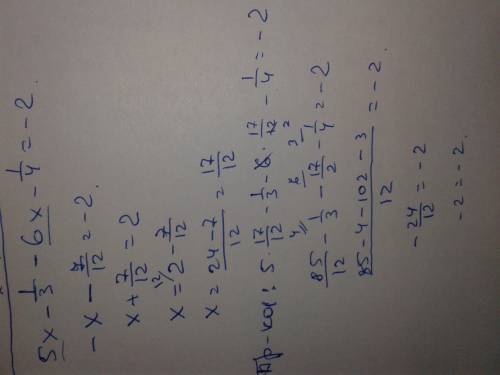 5x - 1/3 - 6x - 1/4 = -2.
-x - 7/12 = -2.
x + 7/12 = 2
x = 2 - 7/12
x = (24-7)/12 = 17/12
Пр-ка: 5 · 17/12 - 1/3 - 6 · 17/12 - 1/4 = -2
85/12 - 1/3 - 17/2 - 1/4 = -2
(85 - 4 - 102 - 3)/12 = -2.
-24/12 = -2
-2 = -2.